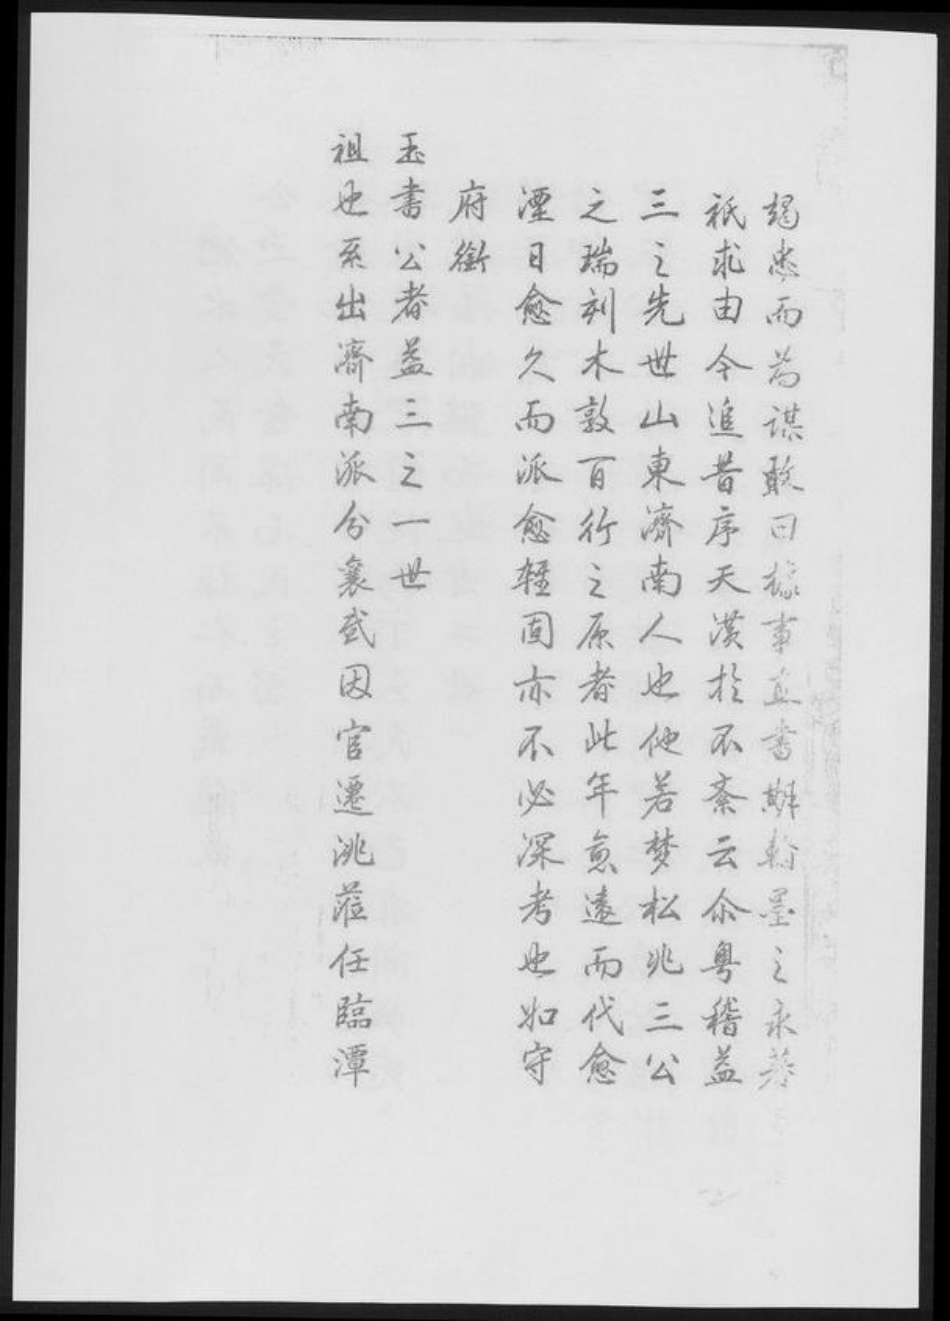 竭忠而為謀敢曰據事直書期翰墨之永芬
祇求由今追昔序天潢於不紊云介粵稽益
三之先世山東濟南人也他若梦松兆三公
之瑞刻木敦百行之原者此年愈遠而代愈
湮日愈久而派愈輕固亦不必深考也如守
府銜
玉書公者益三之一世
祖也系出濟南派分襄武因官遷洮蒞任臨潭